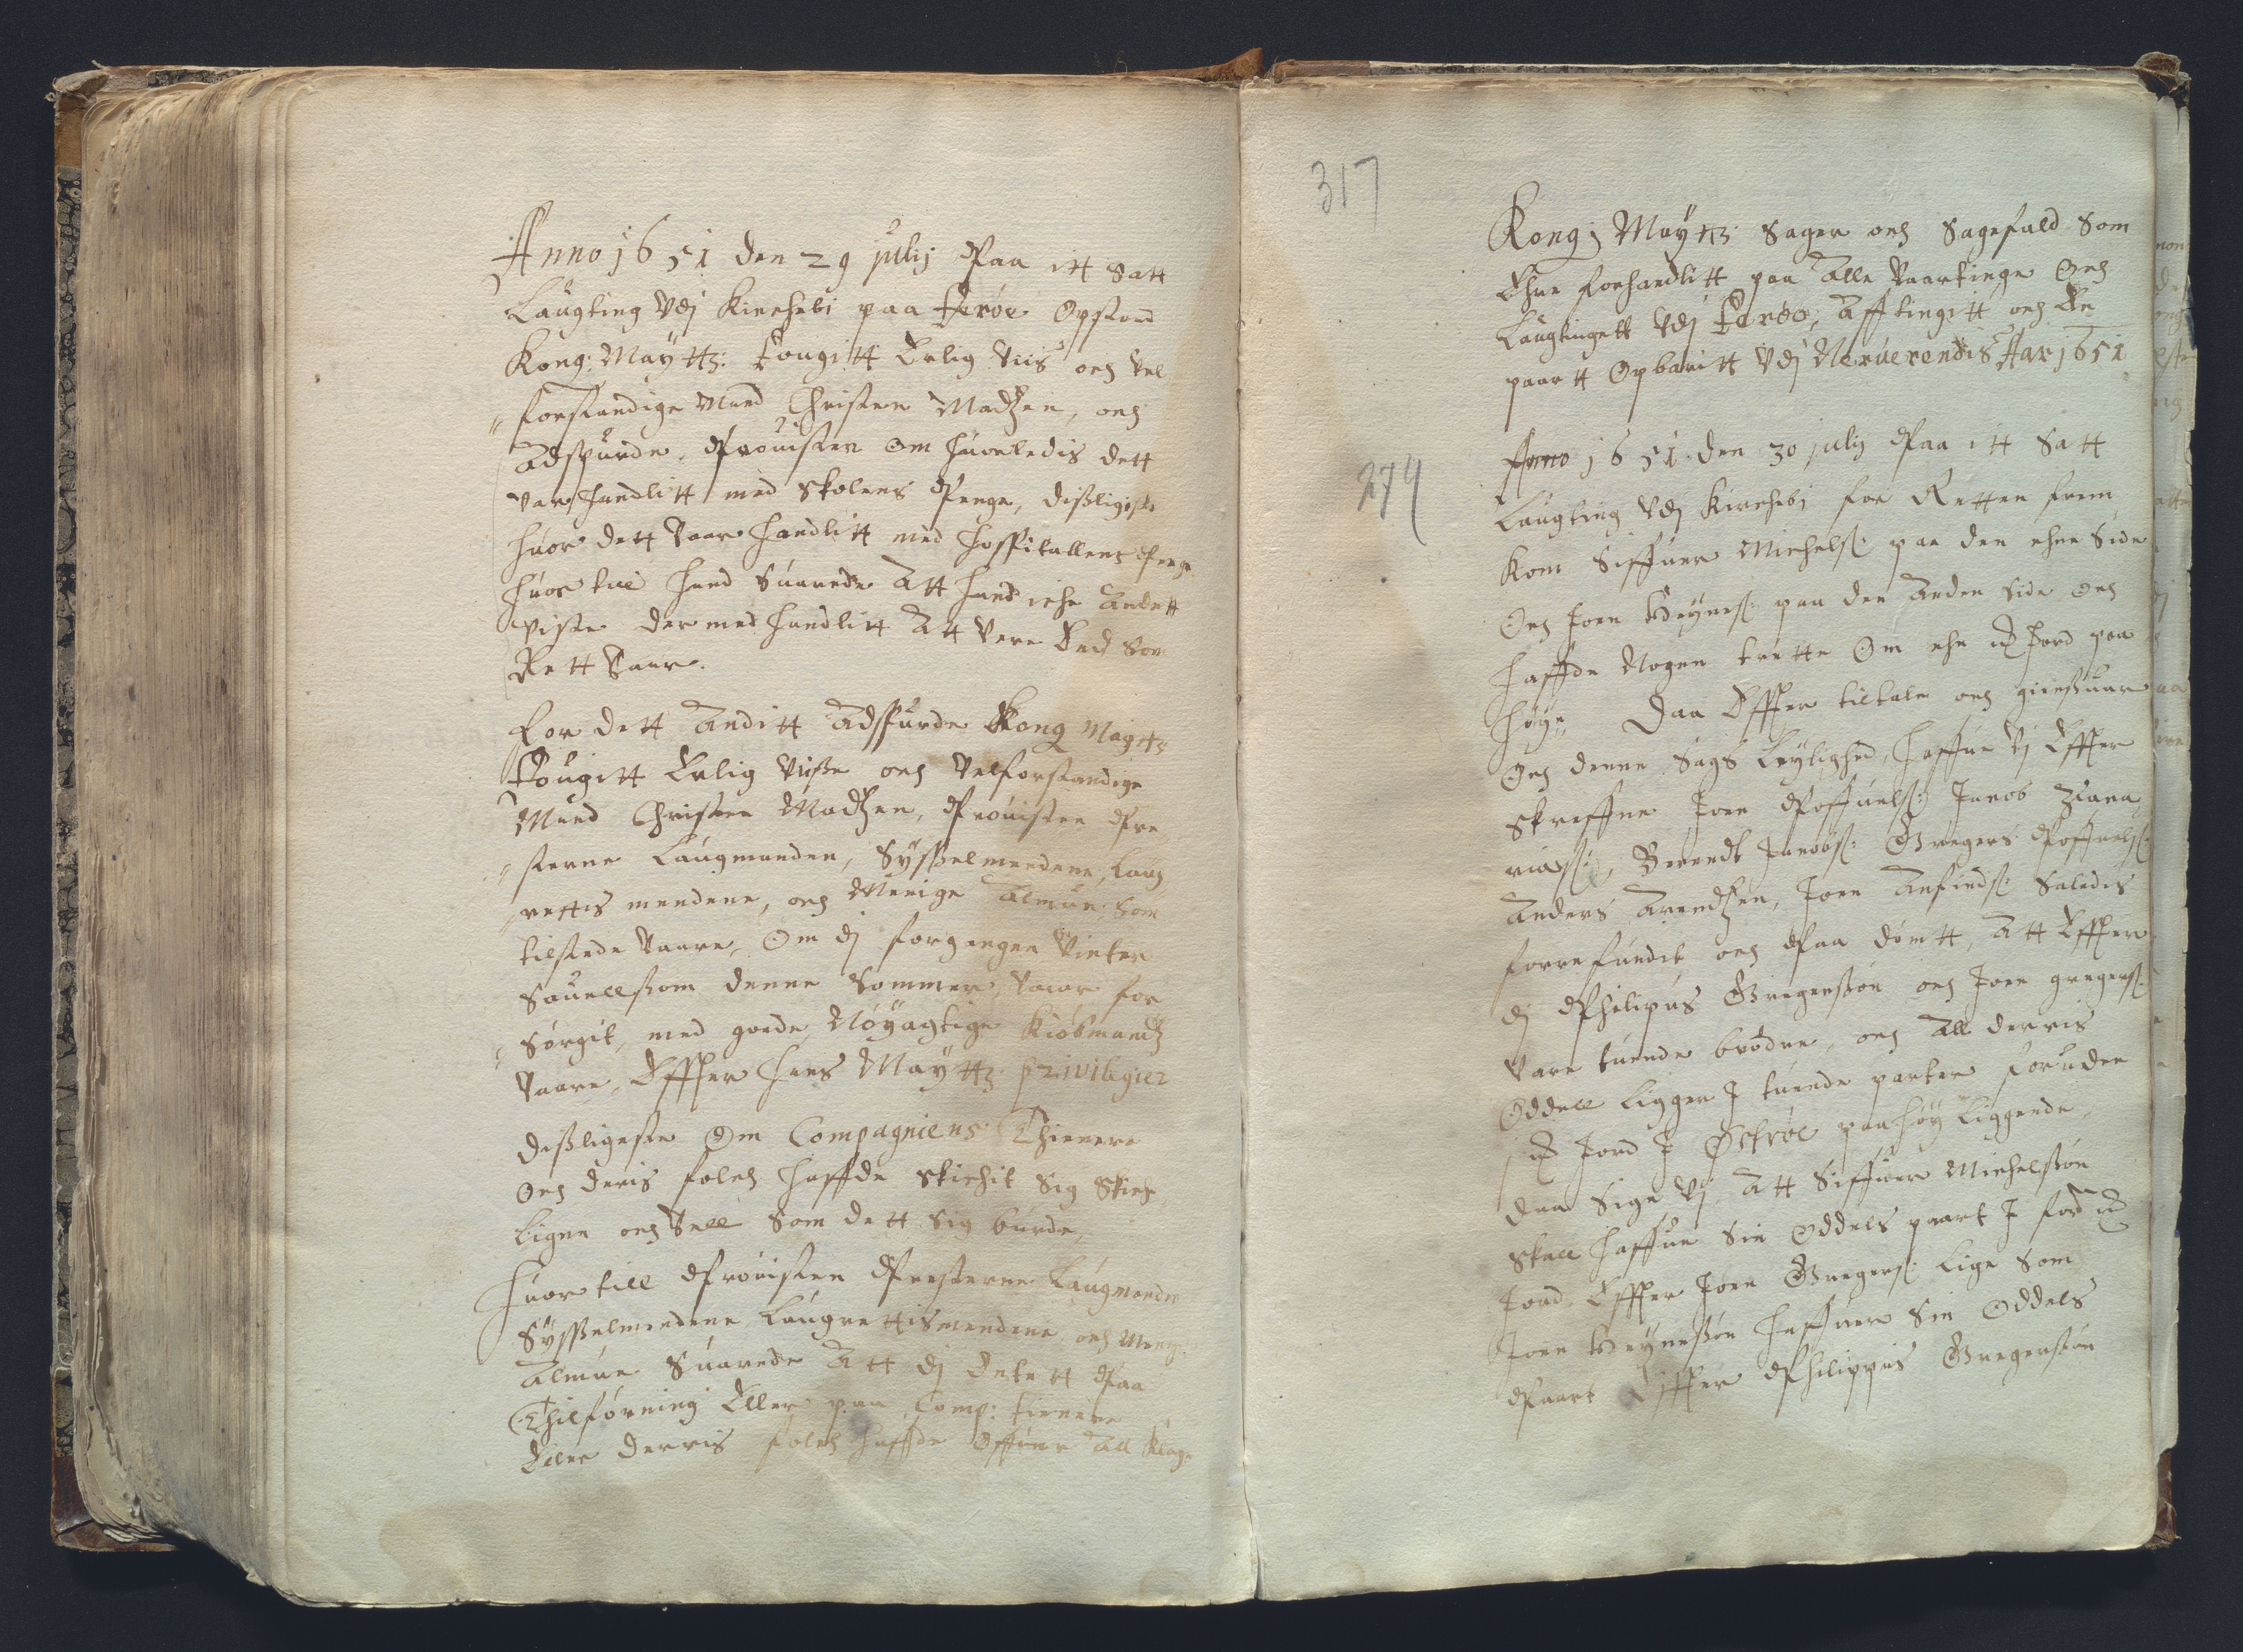 Anno 1651 den 29 julij Paa itt Satt
Laugting Vdj Kirchebi paa Feröe Opstoed
Kong: Maÿttz: Fougitt Erlig Viis och Vel
forstandige Mand Christen Madtzen, och
Adspurde, Prouisten Om huorledis dett
Var handlitt med Skolens Penge, dissligeste
huor dett Vaar handlitt med Hospitallens Penge
huor till hand Suarede Att hand iche Andett
viste der med handlitt Att Vere End Som
Rett Vaar.
For dett Anditt Adspurde Kong Maytz
Fougitt Erlig Viisse och Velforstandige
Mand Christen Madtzen, Prouisten Pre
sterne Laugmanden, Sÿsselmendene, Laug
rettis mendene, och Menige Almue, Som
tilstede Vaare, Om dj forgangen Vinter
Saauellsom denne Sommer, Vaar for
Sörgit, med goede Nöÿagtige Kiöbmandtz
Vaare, Effter Hans Maÿttz: privilegier
dissligeste Om Compagniens Thienere
Och deris folch haffde Skichit Sig Skich
ligen och Vell Som dett Sig burde,
Huor till Prouisten Presterne Laugmanden
Sÿsselmendene Laugrettismendene, och Menig
Almue Suarede Att dj Intett Paa
Thilförning Eller paa Comp: tienere
Eller derris folch haffde Offuer All Klage
317
Kong: Maÿttz: Sager och Sagefald Som
Ehre forhandlitt paa Alle Vaartinge Och
Laugtingett Vdj Feröe, Afftingitt och En
paartt Opbaritt Vdj Neruerendis Aar 1651
274
Anno 1651 den 30 julij Paa itt Satt
Laugting Vdj Kirchebj for Retten frem
Kom Siffuer Michels: paa den ehne Side
Och Joen Heÿnes: paa den Anden Side Och
haffde Nogen trette Om ehn Jord paa
Höÿe, Daa Effter tiltale och giensuar
Och denne Sags Leÿlighed, Haffue Vj Effter
Skreffne Joen Poffuels: Jacob Zacha
rias:, Berendt Jacobs: Gregers Poffuels:
Anders Arendtzen, Joen Anfinds: Saledis
forrefundit och Paa dömtt, Att Effter
dj Philipus Gregerssön och Joen Gregers:
Vare tuende brödre, och All derris
Oddell Ligger J tuende parter foruden
Jord J Öströe paa Höÿ Liggende,
daa Sige Vj, Att Siffuer Michelssön
Skall haffue Sin Oddels paart J for
Jord, Effter Joen Gregers: Lige Som
Joen Heÿnessön haffuer Sin Oddels
Paart Effter Philippus Gregerssön